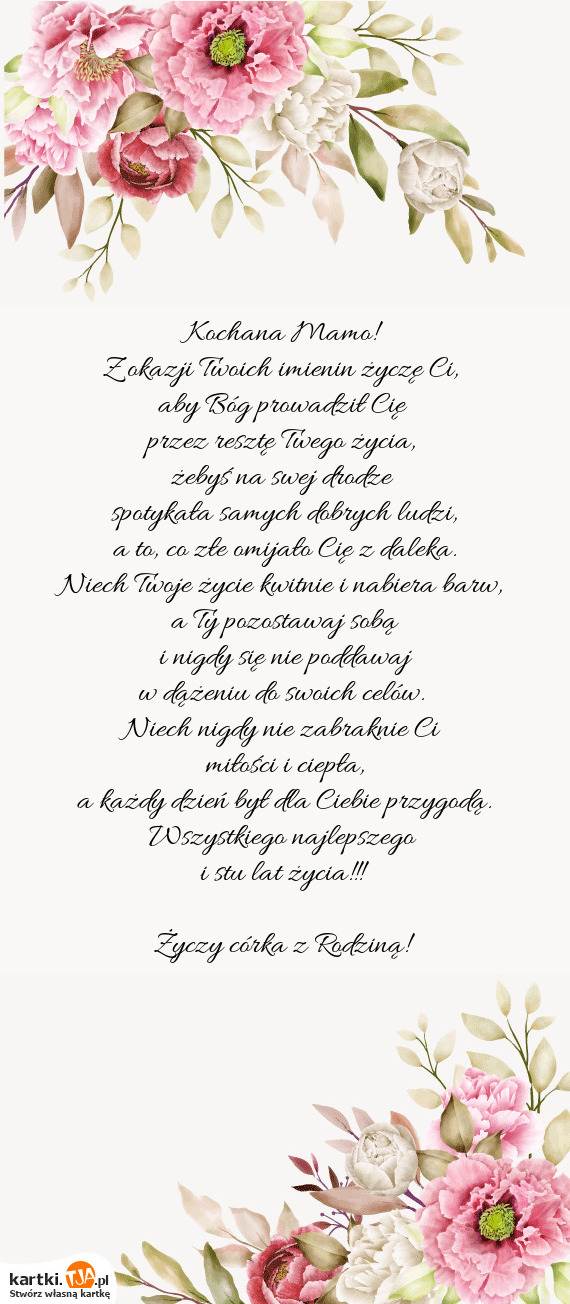 Kochana Mamo!
Z okazji Twoich imienin życzę Ci,
aby Bóg prowadził Cię
przez resztę Twego życia,
żebyś na swej drodze
spotykała samych dobrych ludzi,
a to, co złe omijało Cię z daleka.
Niech Twoje życie kwitnie i nabiera barw,
a Ty pozostawaj sobą
i nigdy się nie poddawaj
w dążeniu do swoich celów.
Niech nigdy nie zabraknie Ci
miłości i ciepła,
a każdy dzień był dla Ciebie przygodą.
Wszystkiego najlepszego
i stu lat życia!!!
Życzy córka z Rodziną!
kartki.TJA.pl
Stwórz własną kartkę